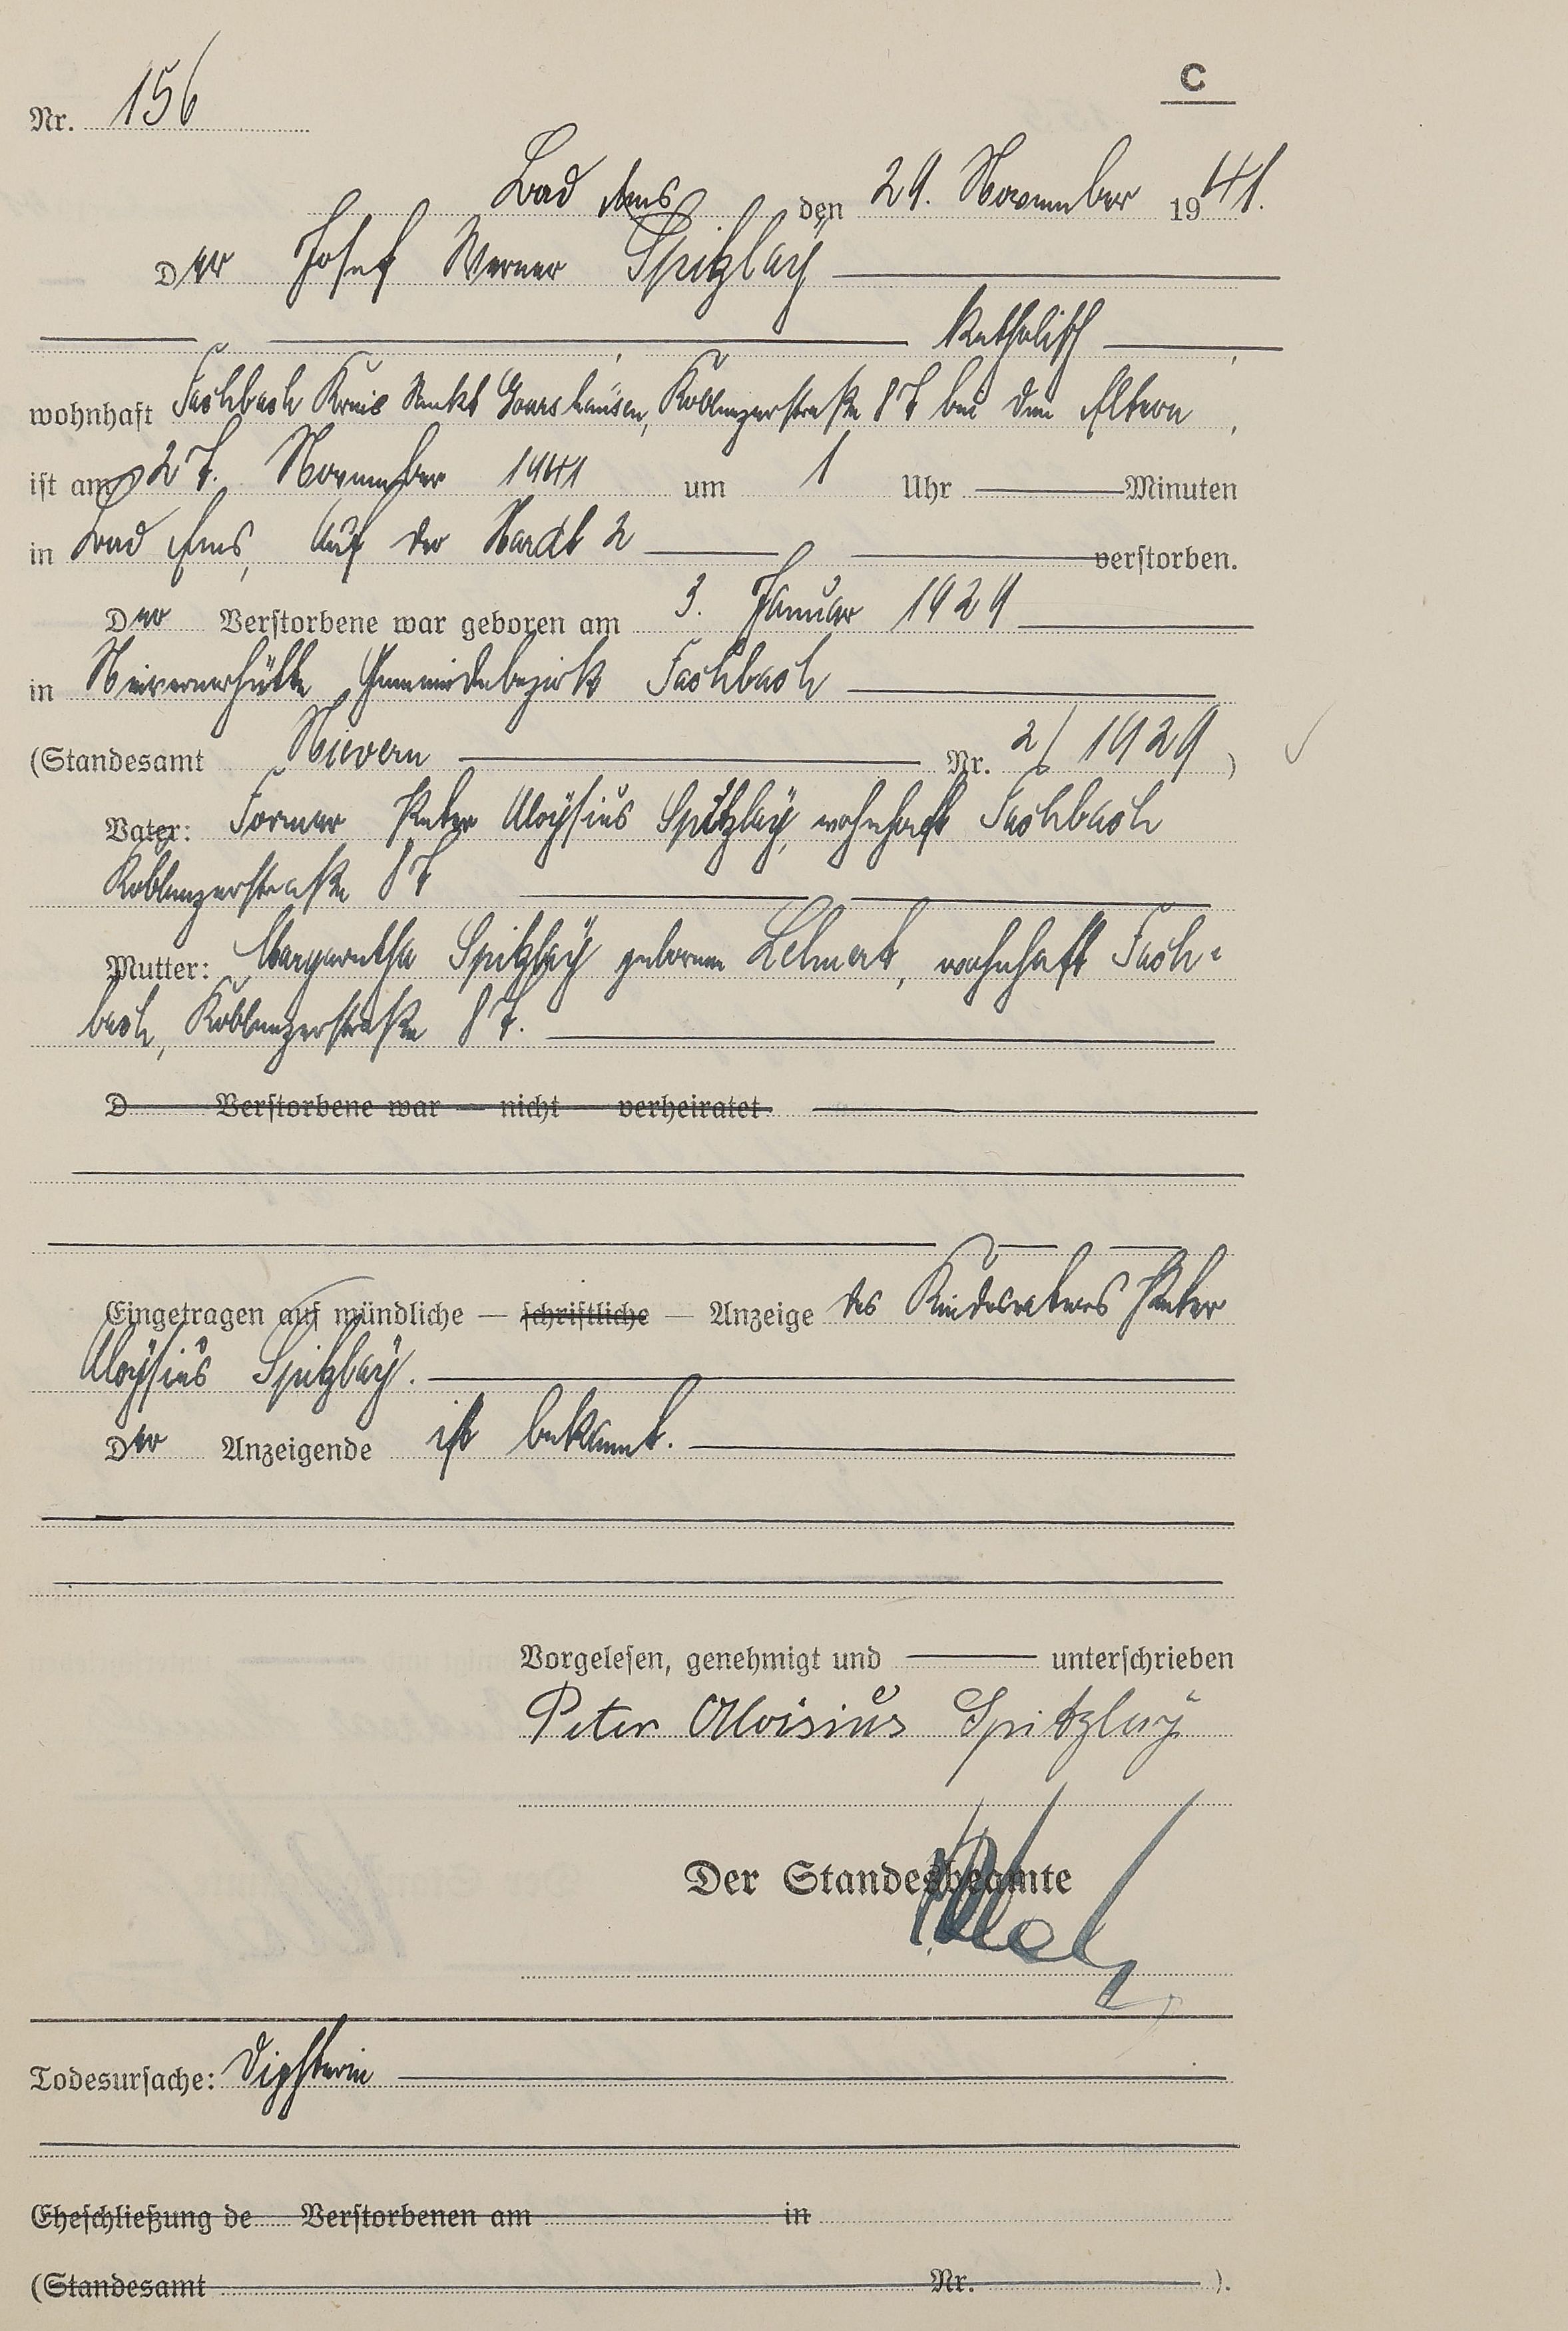 C
Nr. 156
Bad Ems den 29. November 1941.
Der Josef Werner Spitzlaÿ
katholisch ,
wohnhaft Fachbach Kreis Sankt Goarshausen, Koblenzerstraße 87 bei den Eltern ,
ist am 27. November 1941 um 1 Uhr Minuten
in Bad Ems, Auf der Hardt 2 verstorben.
Der Verstorbene war geboren am 3. Januar 1929
in Neivernerhütte Gemeindebezirk Fachbach
(Standesamt Nievern Nr. 2/1929 )
Vater: Former Peter Aloÿsius Spitzlaÿ, wohnhaft Fachbach
Koblenzerstraße 87
Mutter: Margaretha Spitzlaÿ geborene Lehnert, wohnhaft Fach-
bach, Koblenzerstraße 87.
D Verstorbene war — nicht — verheiratet
Eingetragen auf mündliche — schriftliche — Anzeige des Kindesvaters Peter
Aloÿsius Spitzlaÿ.
Der Anzeigende ist bekannt.
Vorgelesen, genehmigt und unterschrieben
Peter Aloisius Spitzlaÿ
Der Standesbeamte
Todesursache: Diphterie
Eheschließung de Verstorbenen am in
(Standesamt Nr. ).